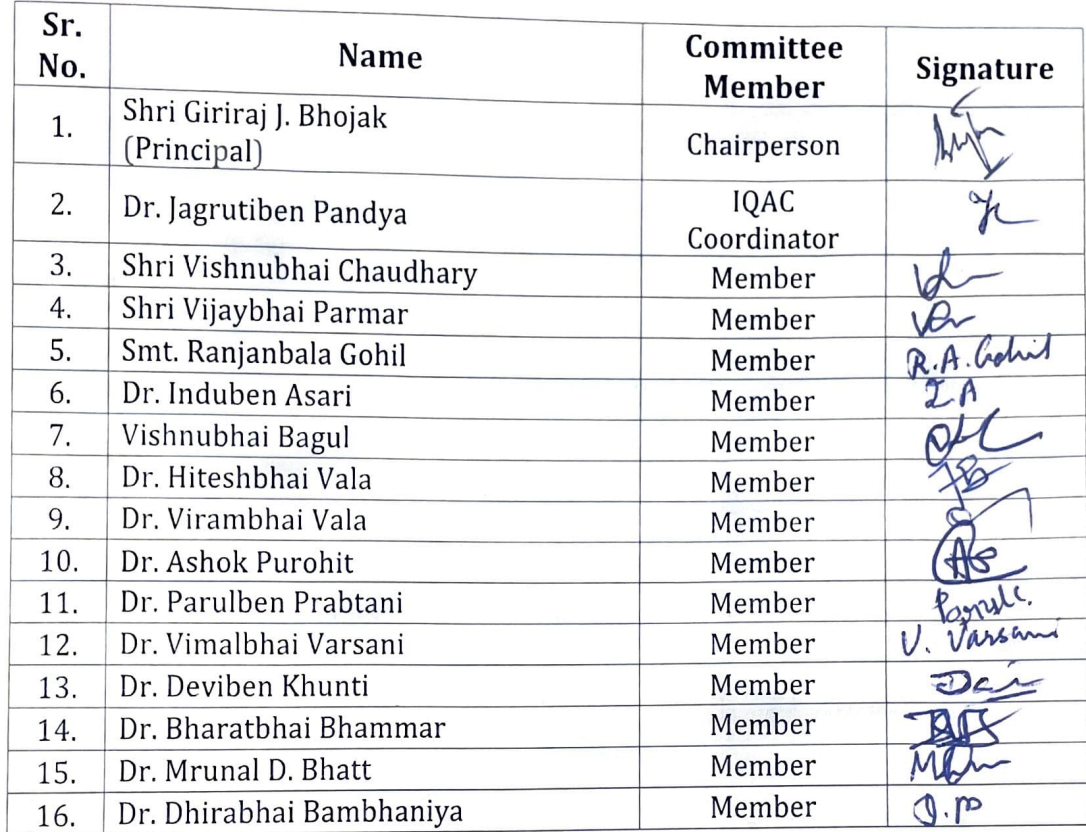 Sr. No. Name Committee Member Signature
1. Shri Giriraj J. Bhojak (Principal) Chairperson
2. Dr. Jagrutiben Pandya IQAC Coordinator
3. Shri Vishnubhai Chaudhary Member
4. Shri Vijaybhai Parmar Member
5. Smt. Ranjanbala Gohil Member R.A. Gohil
6. Dr. Induben Asari Member I.A
7. Vishnubhai Bagul Member
8. Dr. Hiteshbhai Vala Member
9. Dr. Virambhai Vala Member
10. Dr. Ashok Purohit Member
11. Dr. Parulben Prabtani Member
12. Dr. Vimalbhai Varsani Member V. Varsani
13. Dr. Deviben Khunti Member
14. Dr. Bharatbhai Bhammar Member
15. Dr. Mrunal D. Bhatt Member
16. Dr. Dhirabhai Bambhaniya Member